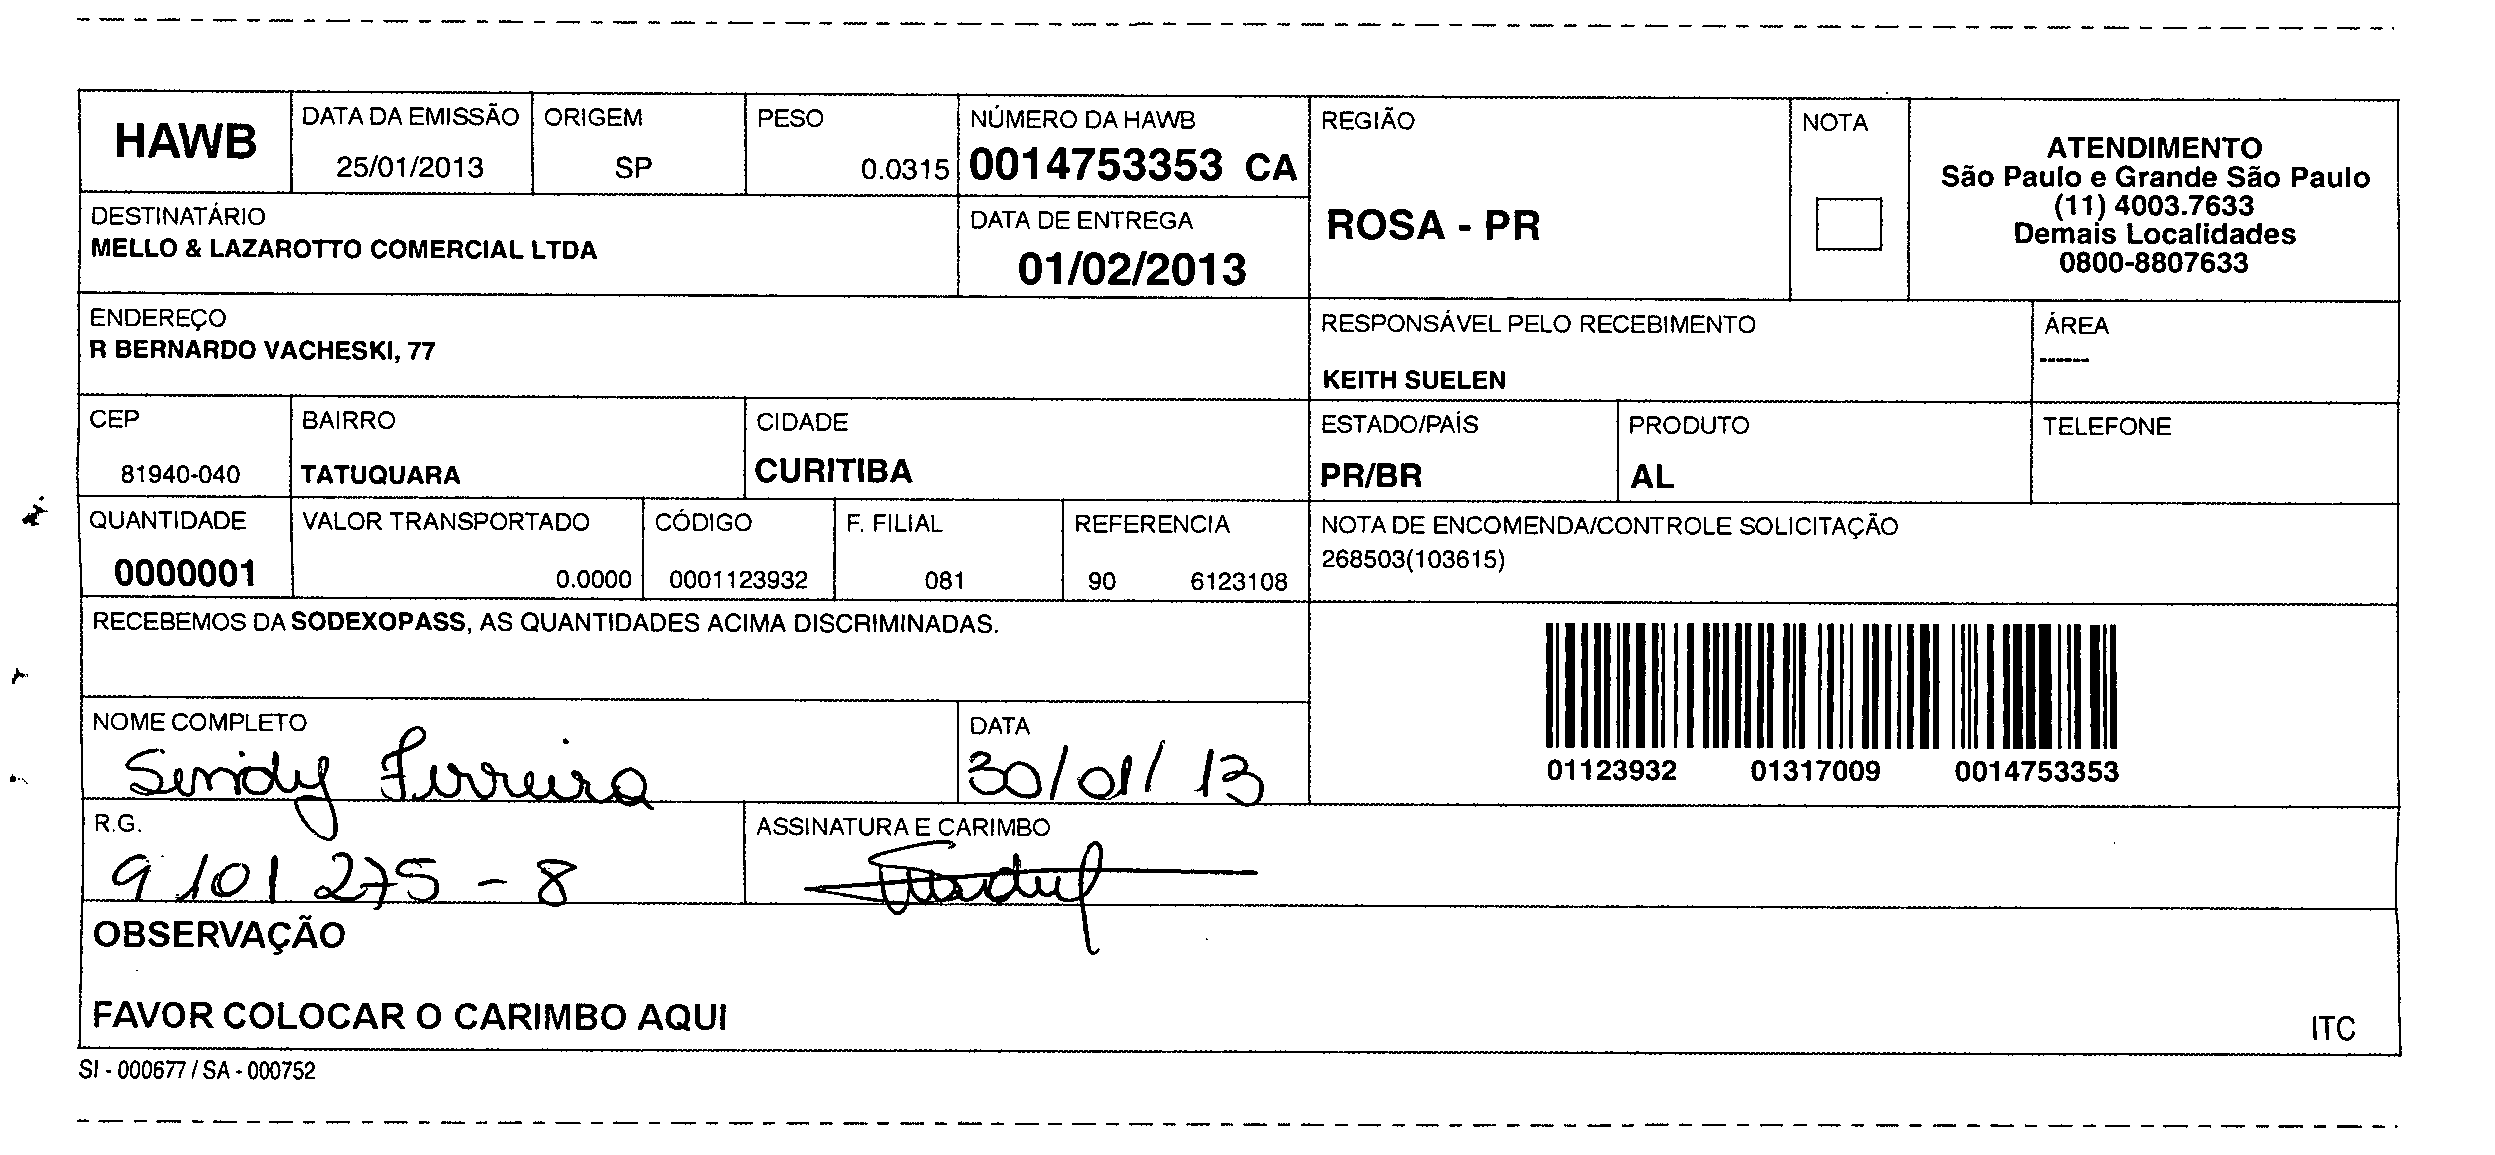 HAWB
DATA DA EMISSÃO
25/01/2013
ORIGEM
SP
PESO
0.0315
NÚMERO DA HAWB
0014753353 CA
REGIÃO
ROSA - PR
NOTA
ATENDIMENTO
São Paulo e Grande São Paulo
(11) 4003.7633
Demais Localidades
0800-8807633
DESTINATÁRIO
MELLO & LAZAROTTO COMERCIAL LTDA
DATA DE ENTREGA
01/02/2013
ENDEREÇO
R BERNARDO VACHESKI, 77
RESPONSÁVEL PELO RECEBIMENTO
KEITH SUELEN
ÁREA
------
CEP
81940-040
BAIRRO
TATUQUARA
CIDADE
CURITIBA
ESTADO/PAÍS
PR/BR
PRODUTO
AL
TELEFONE
QUANTIDADE
0000001
VALOR TRANSPORTADO
0.0000
CÓDIGO
0001123932
F. FILIAL
081
REFERENCIA
90 6123108
NOTA DE ENCOMENDA/CONTROLE SOLICITAÇÃO
268503(103615)
RECEBEMOS DA SODEXOPASS, AS QUANTIDADES ACIMA DISCRIMINADAS.
01123932 01317009 0014753353
NOME COMPLETO
Sendy Ferreira
DATA
30/01/13
R.G.
9101275-8
ASSINATURA E CARIMBO
OBSERVAÇÃO
FAVOR COLOCAR O CARIMBO AQUI
ITC
SI - 000677 / SA - 000752